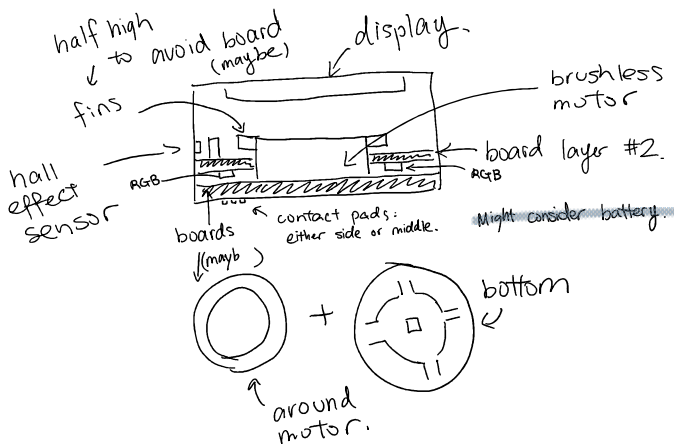 half high
to avoid board
(maybe)
display.
fins
brushless
motor
hall
effect
sensor
RGB
board layer #2.
RGB
contact pads:
either side or middle.
Might consider battery.
boards
(mayb )
+
bottom
around
motor.